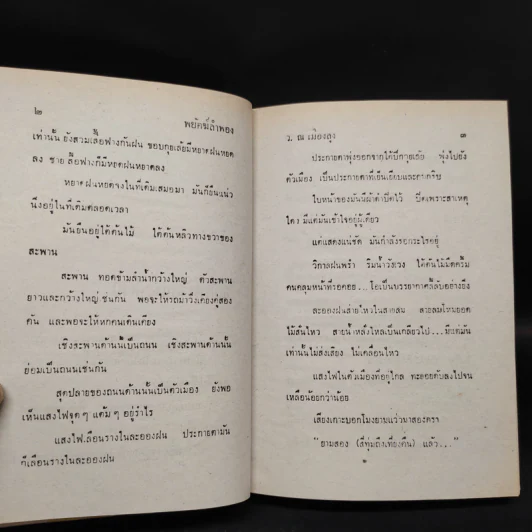 ๒
พยัคฆ์ลำพอง
เท่านั้น ยังสวมเสื้อฟางกันฝน ขอบกุยเล้ยมีหยาดฝนหยด
ลง ชายเสื้อฟางก็มีหยาดฝนหยาดลง
หยาดฝนหยดลงในที่เดิมเสมอมา มันก็ยืนแน่ว
นิ่งอยู่ในที่เดิมตลอดเวลา
มันยืนอยู่ใต้ต้นไม้ ใต้ต้นหลิวทางขวาของ
สะพาน
สะพาน ทอดข้ามลำน้ำกว้างใหญ่ ตัวสะพาน
ยาวและกว้างใหญ่เช่นกัน พอจะให้รถม้าวิ่งเคียงคู่สอง
คัน และพอจะให้หกคนเดินเคียง
เชิงสะพานด้านนี้เป็นถนน เชิงสะพานด้านนั้น
ย่อมเป็นถนนเช่นกัน
สุดปลายของถนนด้านนั้นเป็นตัวเมือง ยังพอ
เห็นแสงไฟจุด ๆ แต้ม ๆ อยู่รำไร
แสงไฟเลือนรางในละอองฝน ประกายตามัน
ก็เลือนรางในละอองฝน
ว. ณ เมืองลุง
๓
ประกายตาพุ่งออกจากใต้ปีกกุยเล้ย พุ่งไปยัง
ตัวเมือง เป็นประกายตาที่เย็นเยียบและคมกริบ
ใบหน้าของมันมีผ้าดำปิดไว้ ปิดเพราะสาเหตุ
ใด? มีแต่มันเข้าใจอยู่ผู้เดียว
แต่แสดงแน่ชัด มันกำลังรอกระไรอยู่
วิกาลฝนพรำ ริมน้ำวังเวง ใต้ต้นไม้มืดครึ้ม
คนคลุมหน้าที่รอคอย... โอเป็นบรรยากาศลี้ลับอย่างยิ่ง
ละอองฝนส่ายไหวในสายลม สายลมโหมยอด
ไม้สั่นไหว สายน้ำหลั่งไหลเป็นเกลียวไป...มีแต่มัน
เท่านั้นไม่ส่งเสียง ไม่เคลื่อนไหว
แสงไฟในตัวเมืองที่อยู่ไกล ทะยอยดับลงไปจน
เหลือน้อยกว่าน้อย
เสียงเคาะบอกโมงยามแว่วมาสองครา
"ยามสอง (สี่ทุ่มถึงเที่ยงคืน) แล้ว..."